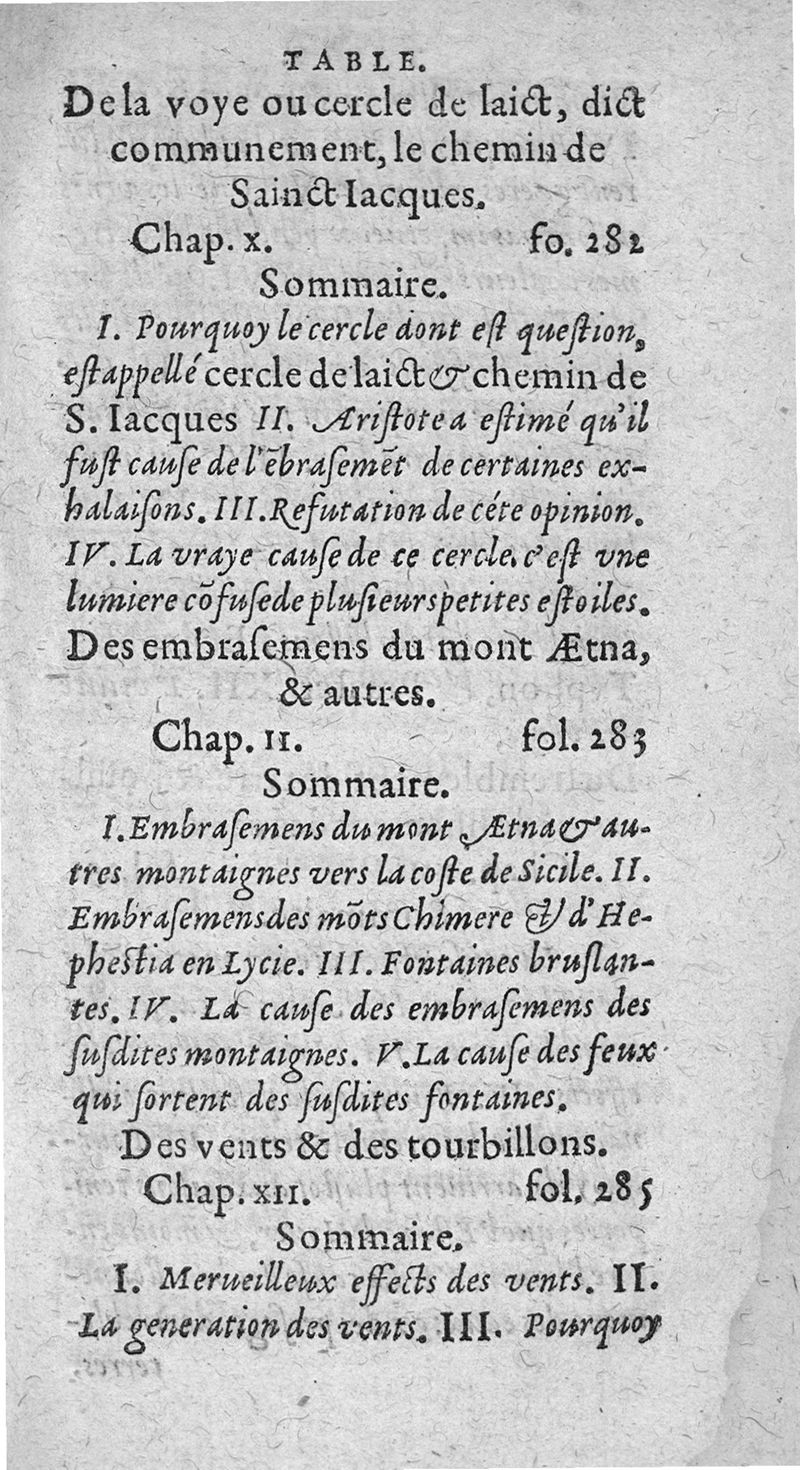 TABLE.
De la voye ou cercle de laict, dict
communement, le chemin de
Sainct Iacques.
Chap. x. fo. 282
Sommaire.
I. Pourquoy le cercle dont eſt queſtion,
eſt appellé cercle de laict & chemin de
S. Iacques II. Ariſtote a eſtimé qu'il
fuſt cauſe de l'ēbraſemēt de certaines ex-
halaiſons. III. Refutation de céte opinion.
IV. La vraye cauſe de ce cercle, c'eſt vne
lumiere cōfuſe de pluſieurs petites eſtoiles.
Des embraſemens du mont Ætna,
& autres.
Chap. 11. fol. 283
Sommaire.
I. Embraſemens du mont Ætna & au-
tres montaignes vers la coſte de Sicile. II.
Embraſemens des mōts Chimere & d'He-
pheſtia en Lycie. III. Fontaines bruſlan-
tes. IV. La cauſe des embraſemens des
ſuſdites montaignes. V. La cauſe des feux
qui ſortent des ſuſdites fontaines.
Des vents & des tourbillons.
Chap. xii. fol. 285
Sommaire.
I. Merueilleux effects des vents. II.
La generation des vents. III. Pourquoy